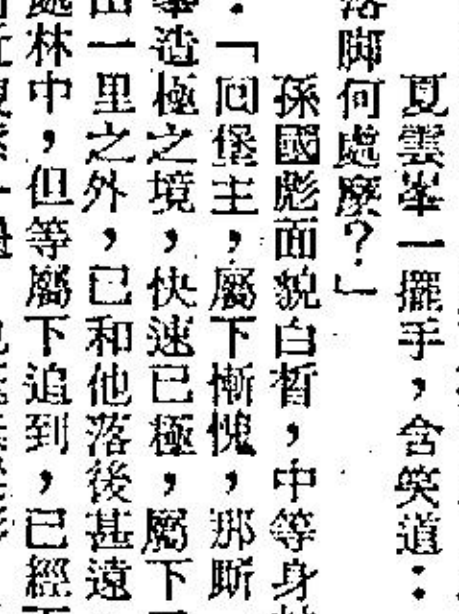 夏雲峯一擺手,含笑道:
落脚何處麼?」
孫國彪面貌白皙,中等身
:「囘堡主,屬下慚愧,那斯
峯造極之境,快速已極,屬下
出一里之外,已和他落後甚遠
處林中,但等屬下追到,已經